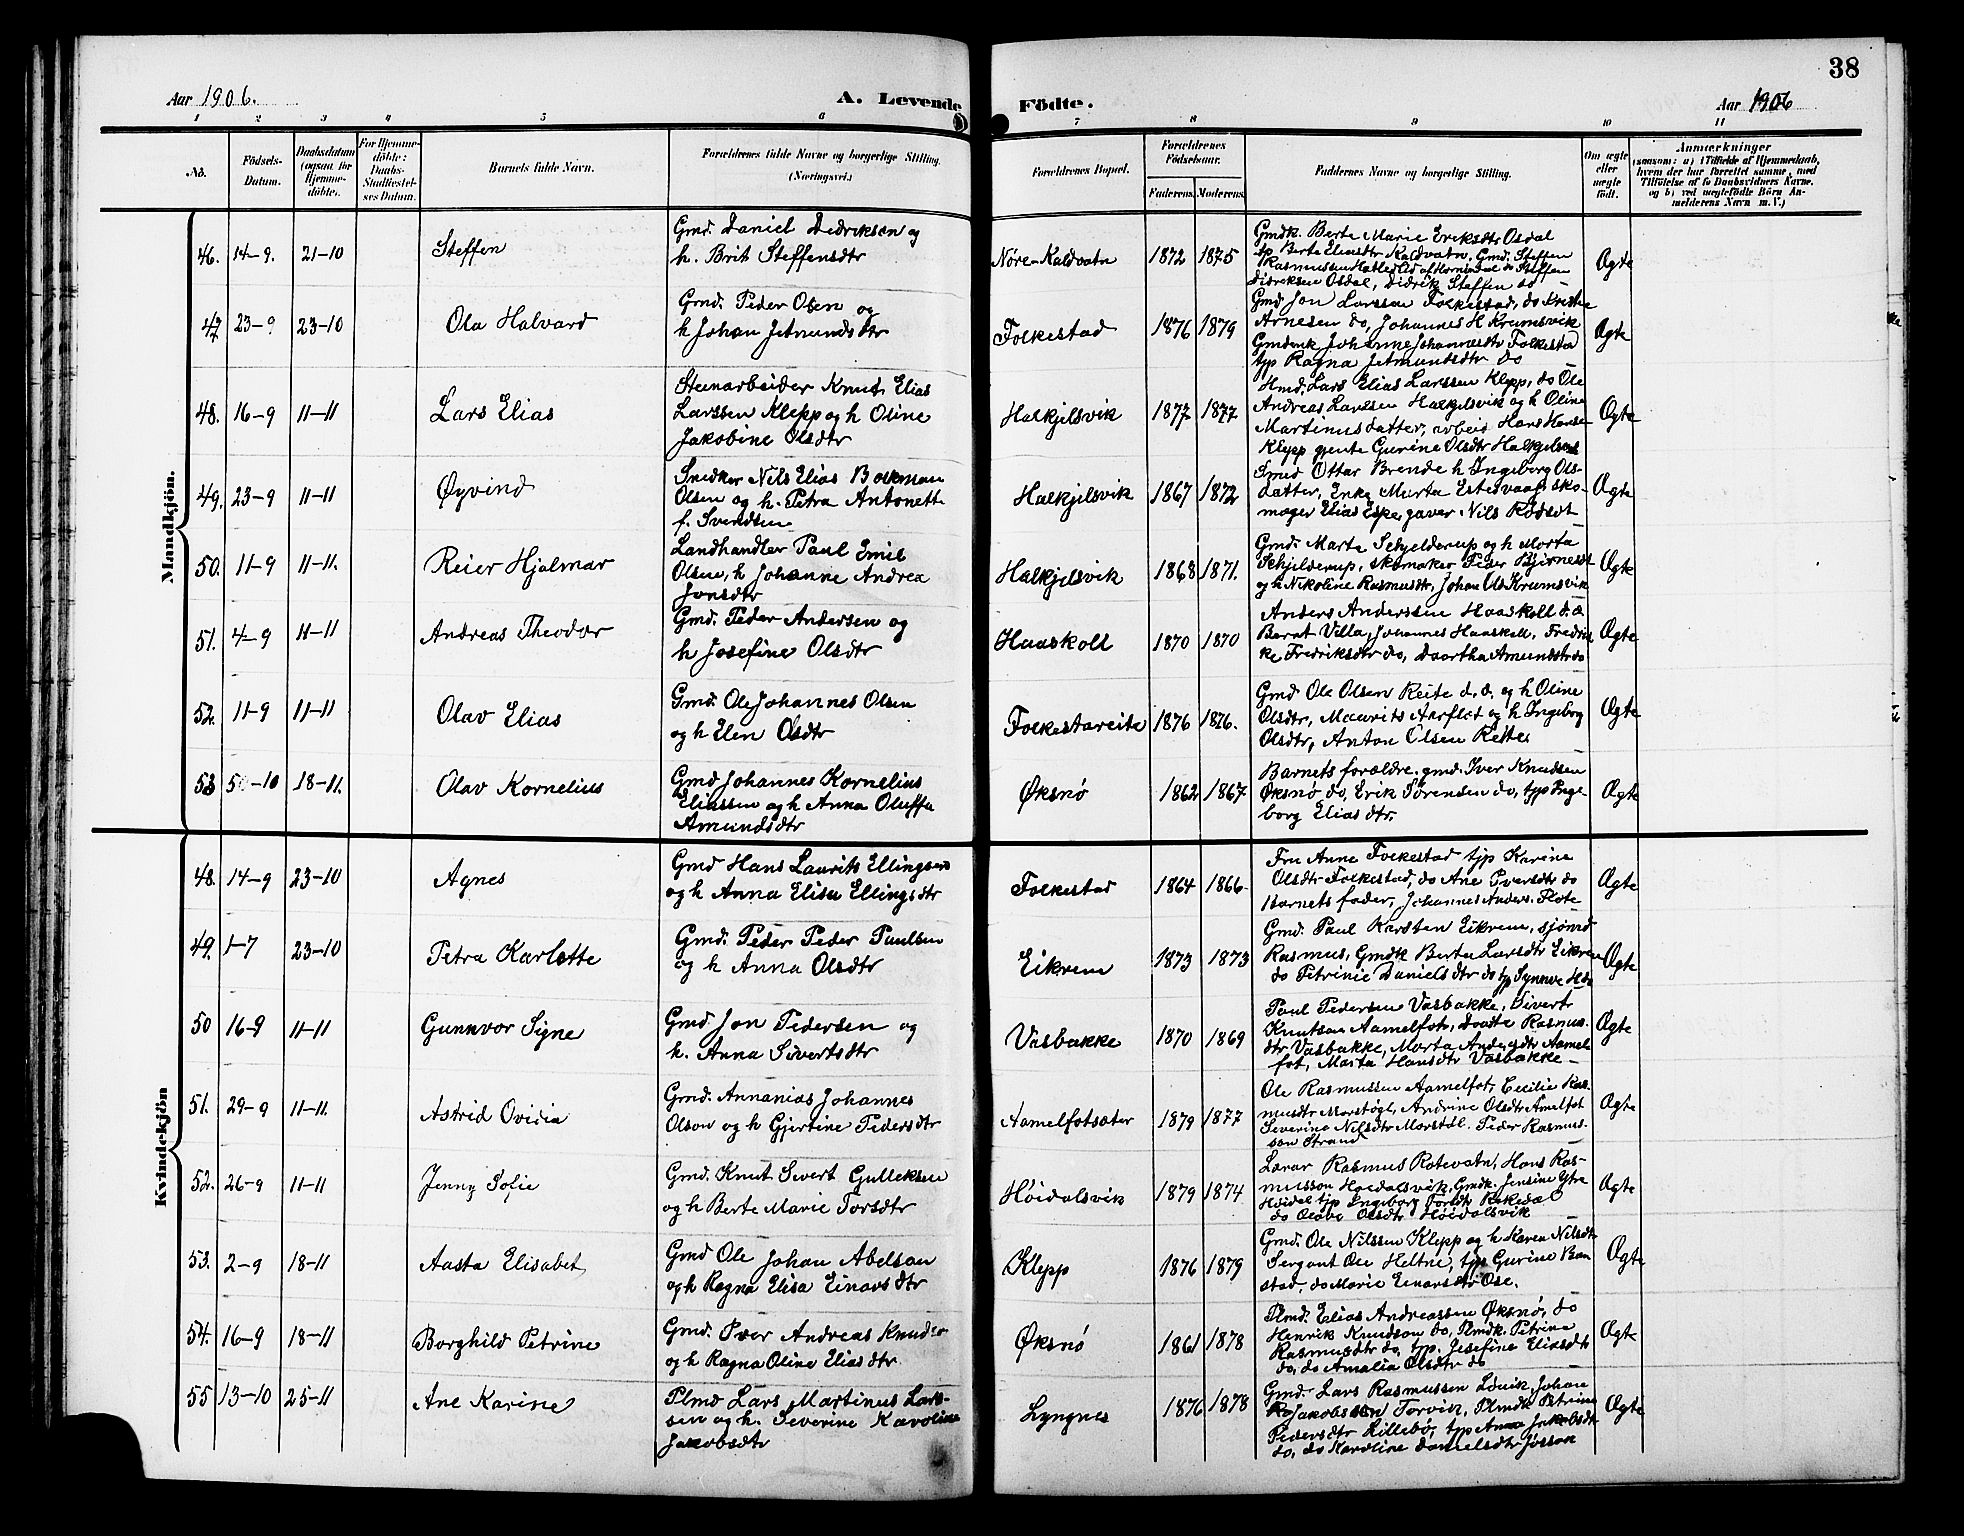 38
Aar 1906.
A. Levende Födte.
Aar 1906
1 2 3 4 5 6 7 8 9 10 11
No.
Födsels-
Datum.
Daabsdatum
(ogsaa for
Hjemme-
döbte).
For Hjemme-
döbte:
Daabs-
Stadfæstel-
ses Datum.
Barnets fulde Navn.
Forældrenes fulde Navne og borgerlige Stilling.
(Næringsvei.)
Forældrenes Bopæl.
Forældrenes
Födselsaar.
Faderens. Moderens.
Faddernes Navne og borgerlige Stilling.
Om ægte
eller
uægte
födt.
Anmærkninger
(saasom: a) i Tilfælde af Hjemmedaab,
hvem der har forrettet samme, med
Tilföielse af to Daabsvidners Navne,
og b) ved uægtefödte Börn An-
melderens Navn m. V.)
Mandkjön.
46. 14-9. 21-10 Steffen
Gmd. Daniel Didriksen og
h. Brit Steffensdtr
Nöre-Kaldvatn 1872 1875
Gmdk. Berte Marie Eriksdtr Osdal
tjp Berte Eliasdtr Kaldvatn, Gmd. Steffen
Rasmussen af Hornindal do Steffen
Didriksen Osdal, Didrik Steffen do
Ægte
47. 23-9 23-10 Ola Halvard
Gmd. Peder Olsen og
h Johan Jetmundsdtr
Folkestad 1876 1879
Gmd Jon Larssen Folkestad, do
Arnesen do, Johannes H Krumsvik
Johanne Johannesdtr Folkestad
tjp Ragna Jetmundsdtr do
Ægte
48. 16-9 11-11 Lars Elias
Stenarbeider Knut Elias
Larssen Klepp og h Oline
Jakobine Olsdtr
Halkjelsvik 1877 1877
Hmd. Lars Elias Larssen Klepp, do Ole
Andreas Larssen Halkjelsvik og h Oline
Martinusdatter, arbeid Hans Hansen
Klepp gjente Gurine Olsdtr Halkjelsvik
Ægte
49. 23-9 11-11 Øyvind
Snedker Nils Elias Bokman
Olsen og h. Petra Antonett
f. Svendsen
Halkjelsvik 1867 1872
Smed Ottar Brende h Ingeborg Ols-
datter, Enke Marta sko-
mager Elias Espe,
Ægte
50. 11-9 11-11. Reier Hjalmar
Landhandler Paul Emil
Olsen, h Johanne Andrea
Jonsdtr
Halkjelsvik 1868 1871.
Gmd. Marta Schjelderup og h Marta
Schjelderup, skomaker Peder Bjørneset
og h Nikoline Rasmusdtr, Johan Ols Krumsvik
Ægte
51. 4-9 11-11 Andreas Theodor
Gmd. Peder Andersen og
h Josefine Olsdtr
Haaskoll 1870 1870
Anders Anderssen Haaskoll do
Villa, Johannes Haaskoll, Fredrik
ke Fredriksdtr do, Daartha Amundsdtr do
Ægte
52. 11-9 11-11 Olav Elias
Gmd. Ole Johannes Olsen
og h Elen Olsdtr
Folkestareite 1876 1876.
Gmd Ole Olsen Reite d.o. og h Oline
Olsdtr, Maurits Aarflot og h Ingeborg
Olsdtr, Anton Olsen Reite
Ægte
53 5-10 18-11. Olav Kornelius
Gmd Johannes Kornelius
Eliassen og h Anna Oluffa
Amundsdtr
Øksnø 1862 1867
Barnets forældre, gmd. Iver Knudsen
Øksnø do, Erik Sørensen do, tjp Inge-
borg Eliasdtr.
Ægte
Kvindekjön
48. 14-9 23-10 Agnes
Gmd Hans Laurits Ellingsen
og h Anna Elisa Ellingsdtr
Folkestad 1864 1866
Fru Anne Folkestad tjp Karine
Olsdtr Folkestad, do Ane Iversdtr do
Barnets fader, Johannes Anders. Flote
Ægte
49. 1-7 23-10 Petra Karlotte
Gmd. Peder Peder Paulsen
og h Anna Olsdtr
Eikrem 1873 1873
Gmd. Paul Karsten Eikrem, sjömd
Rasmus, Gmdk Berta Larsdtr Eikrem
do Petrinie Danielsdtr do tjp Synnøve
Ægte
50 16-9 11-11 Gunnvor Signe
Gmd Jon Pedersen og
h. Anna Sivertsdtr
Vasbakke 1870 1869
Paul Pedersen Vasbakke, Sivert
Knutson Aamelfot, Dordte Rasmus-
dtr Vasbakke, Marta Andersdtr Aamel
fot, Marta Hansdtr Vasbakke
Ægte
51. 29-9 11-11. Astrid Ovidia
Gmd. Annanias Johannes
Olson og h Gjertine Pedersdtr
Aamelfotsæter 1879 1877
Ole Rasmussen Aamelfot, Cecilie Ras-
musdtr Marstøgl, Andrine Olsdtr Amelfot
Severine Nilsdtr Marstöl. Peder Rasmus-
son Strand
Ægte
52. 26-9 11-11 Jenny Sofie
Gmd. Knut Sivert Gulleksen
og h Berte Marie Torsdtr
Höidalsvik 1879 1874
Lærar Rasmus Rotevatn, Hans Ras-
musson Hoidalsvik, Gmdk. Jensine Ytre
Hoidal tjp Ingeborg
do Olsdtr Höidalsvik
Ægte
53. 2-9 18-11 Aasta Elisabet
Gmd Ole Johan Abelson
og h Ragna Elisa Einarsdtr
Klepp 1876 1879
Gmd. Ole Nilssen Klepp og h Karen Nilsdtr
Sergant Ole Heltne, tjp Gurine Bau
stad, do Marie Einarsdtr Ose.
Ægte
54. 16-9 18-11 Borghild Petrine
Gmd. Iver Andreas Knudsen
og h Ragna Oline Eliasdtr
Øksnö 1861 1878
Plmd. Elias Andreassen Øksnø, do
Henrik Knudson do, Plmdk. Petrine
Rasmusdtr do, tjp. Josefine Eliasdtr
do, do Amalia Olsdtr do
Ægte
55 13-10 25-11 Ane Karine
Plmd Lars Martinus Lars-
sen og h. Severine Karoline
Jakobsdtr
Lyngnes 1876 1878
Gmd. Lars Rasmussen Lövik, Johan
Jakobssen Torvik, Plmdk Petrine
Pedersdtr Lillebø, tjp Anna Jakobsdtr
do, do Karoline Danielsdtr
Ægte